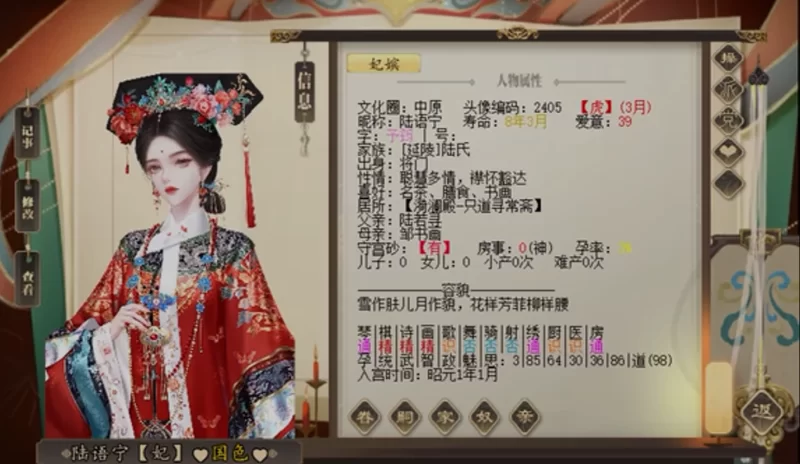 妃嫔
人物属性
信息
文化圈：中原 头像编码：2405 【虎】(3月)
昵称：陆语宁 寿命：8年3月 爱意：39
字：予筠 号：
家族：[延陵]陆氏
出身：将门
性情：聪慧多情，襟怀豁达
喜好：名茶、膳食、书画
居所：【漪澜殿-只道寻常斋】
父亲：陆若寻
母亲：邹书画
守宫砂：【有】 房事：0(神) 孕率：
儿子：0 女儿：0 小产0次 难产0次
容貌
雪作肤儿月作貌，花样芳菲柳样腰
琴|棋|诗|画|歌|舞|骑|射|绣|厨|医|房
通|精|精|精|识|否|否|否|通|识|识|通
孕|统|武|智|政|魅|甲：3|85|64|30|36|86|道(98)
入宫时间：昭元1年1月
记事
修改
查看
卷 嗣 家 奴 亲
返
陆语宁【妃】国色